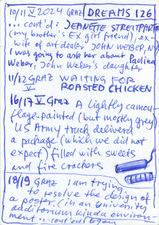 10/11 V 2024 GRAZ DREAMS 126
... cont'd: JEANETTE STREITPARTH
(my brother's EX girl friend), ax-
wife of art dealer JOHN WEBER, NY
I was going to ask her about Paulina
Weber, John Weber's daughter
11/12 GRAZ WAITING FOR
ROASTED CHICKEN
16/17 V GRAZ A lightly camou-
flage-painted (but mostly grey)
US Army truck delivered
a package (which we did not
expect) filled with sweets
and fire crackers
18/19 GRAZ I am trying
to resolve the design of
a poster, (in an university
auditorium kinda environ-
ment...